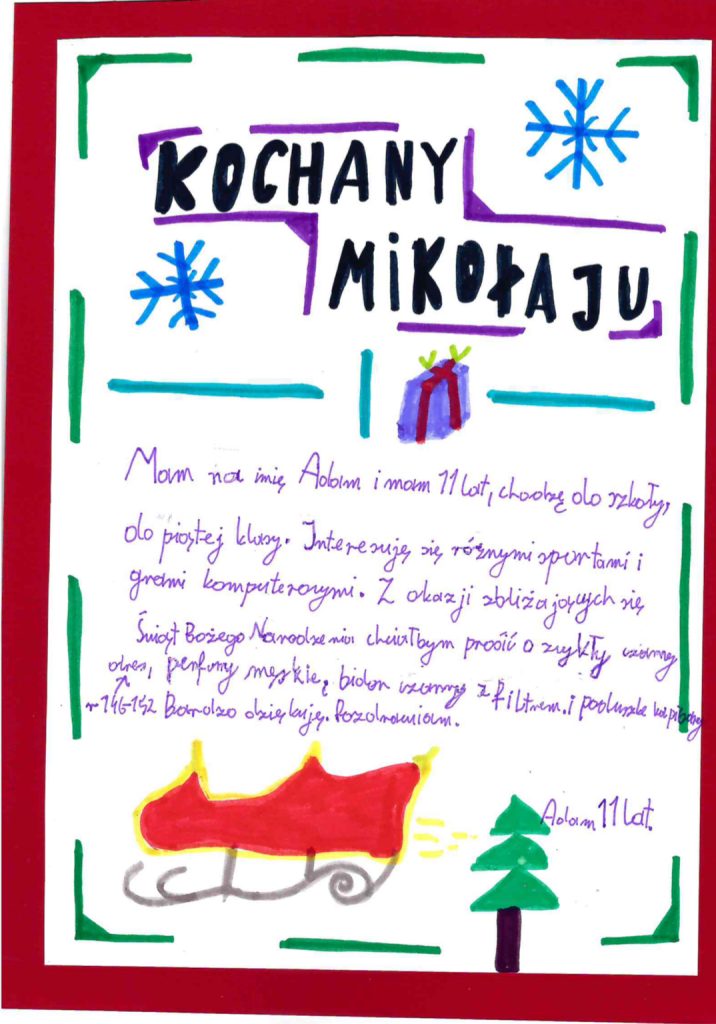 KOCHANY
MIKOŁAJU
Mam na imię Adam i mam 11 lat, chodzę do szkoły,
do piątej klasy. Interesuję się różnymi sportami i
grami komputerowymi. Z okazji zbliżających się
Świąt Bożego Narodzenia chciałbym prośić o zwykły czarny
dres, perfumy męskie, bidon czarny z filtrem. i poduszkę
r 146-152 Bardzo dziękuję. Pozdrawiam.
Adam 11 lat.